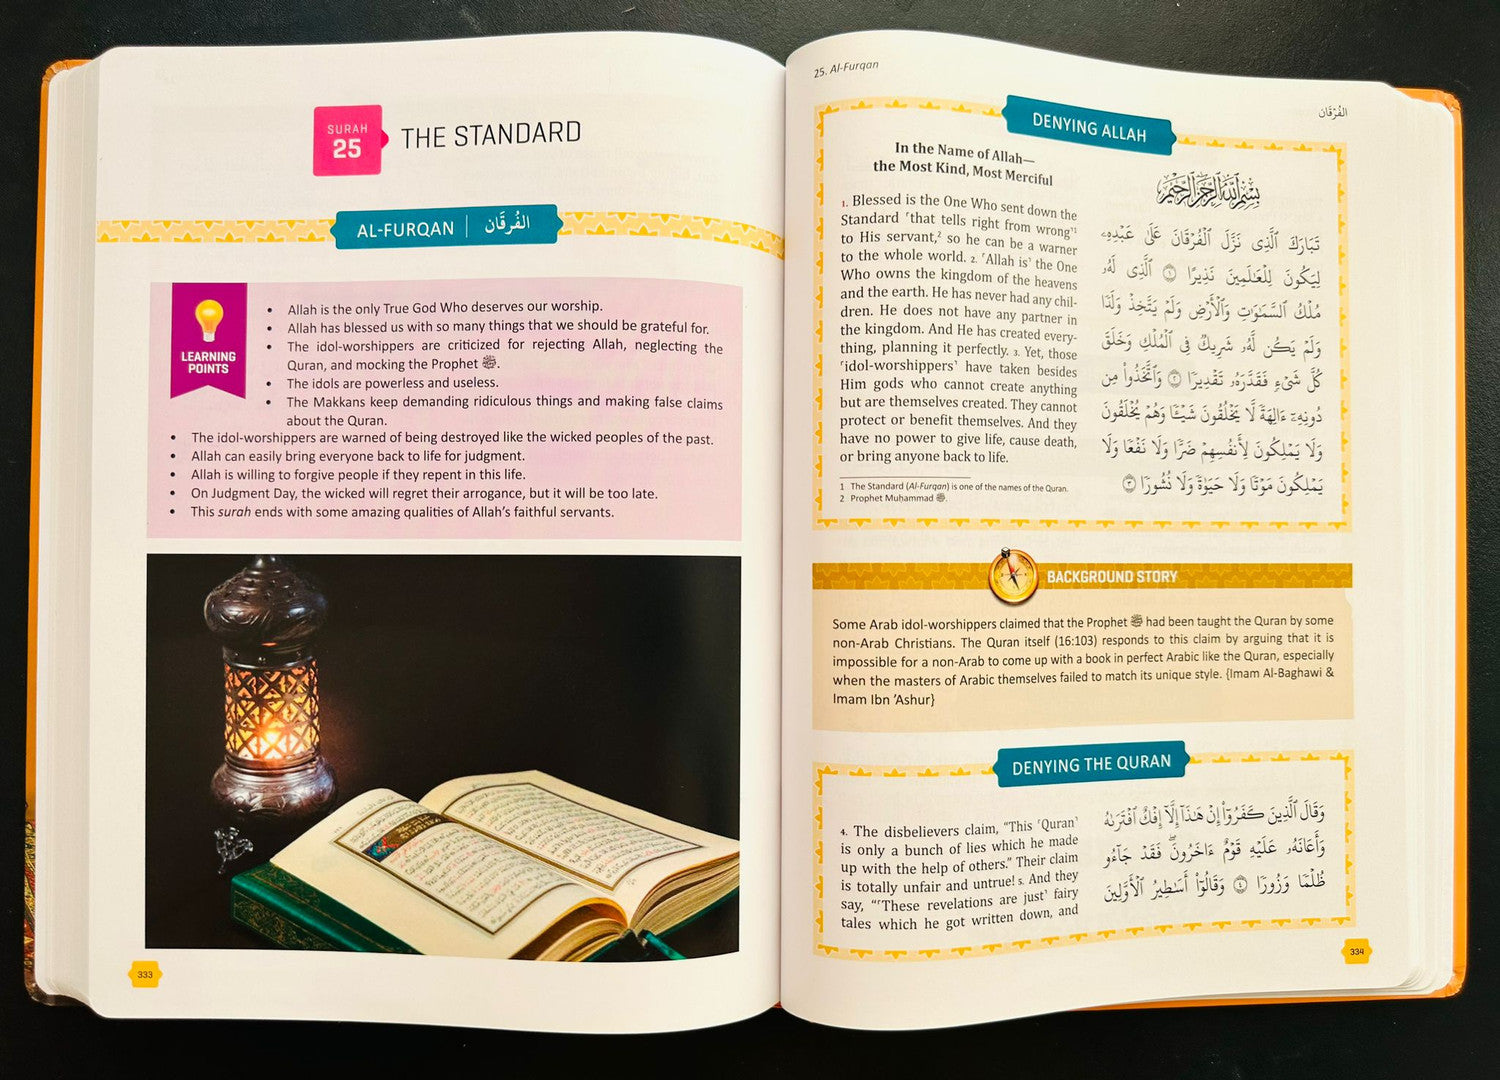 SURAH
25
THE STANDARD
AL-FURQAN | الفُرقَان
LEARNING
POINTS
• Allah is the only True God Who deserves our worship.
• Allah has blessed us with so many things that we should be grateful for.
• The idol-worshippers are criticized for rejecting Allah, neglecting the
Quran, and mocking the Prophet ﷺ.
• The idols are powerless and useless.
• The Makkans keep demanding ridiculous things and making false claims
about the Quran.
• The idol-worshippers are warned of being destroyed like the wicked peoples of the past.
• Allah can easily bring everyone back to life for judgment.
• Allah is willing to forgive people if they repent in this life.
• On Judgment Day, the wicked will regret their arrogance, but it will be too late.
• This surah ends with some amazing qualities of Allah’s faithful servants.
333
25. Al-Furqan
الفُرْقَان
DENYING ALLAH
In the Name of Allah—
the Most Kind, Most Merciful
1. Blessed is the One Who sent down the
Standard ˹that tells right from wrong˺¹
to His servant,² so he can be a warner
to the whole world. 2. ˹Allah is˺ the One
Who owns the kingdom of the heavens
and the earth. He has never had any chil-
dren. He does not have any partner in
the kingdom. And He has created every-
thing, planning it perfectly. 3. Yet, those
˹idol-worshippers˺ have taken besides
Him gods who cannot create anything
but are themselves created. They cannot
protect or benefit themselves. And they
have no power to give life, cause death,
or bring anyone back to life.
1 The Standard (Al-Furqan) is one of the names of the Quran.
2 Prophet Muhammad ﷺ.
بِسْمِ ٱللَّهِ ٱلرَّحْمَٰنِ ٱلرَّحِيمِ
تَبَارَكَ ٱلَّذِى نَزَّلَ ٱلْفُرْقَانَ عَلَىٰ عَبْدِهِۦ
لِيَكُونَ لِلْعَـٰلَمِينَ نَذِيرًا ١ ٱلَّذِى لَهُۥ
مُلْكُ ٱلسَّمَـٰوَٰتِ وَٱلْأَرْضِ وَلَمْ يَتَّخِذْ وَلَدًا
وَلَمْ يَكُن لَّهُۥ شَرِيكٌ فِى ٱلْمُلْكِ وَخَلَقَ
كُلَّ شَىْءٍ فَقَدَّرَهُۥ تَقْدِيرًا ٢ وَٱتَّخَذُوا۟ مِن
دُونِهِۦٓ ءَالِهَةً لَّا يَخْلُقُونَ شَيْـًٔا وَهُمْ يُخْلَقُونَ
وَلَا يَمْلِكُونَ لِأَنفُسِهِمْ ضَرًّا وَلَا نَفْعًا وَلَا
يَمْلِكُونَ مَوْتًا وَلَا حَيَوٰةً وَلَا نُشُورًا ٣
BACKGROUND STORY
Some Arab idol-worshippers claimed that the Prophet ﷺ had been taught the Quran by some
non-Arab Christians. The Quran itself (16:103) responds to this claim by arguing that it is
impossible for a non-Arab to come up with a book in perfect Arabic like the Quran, especially
when the masters of Arabic themselves failed to match its unique style. {Imam Al-Baghawi &
Imam Ibn ’Ashur}
DENYING THE QURAN
4. The disbelievers claim, “This ˹Quran˺
is only a bunch of lies which he made
up with the help of others.” Their claim
is totally unfair and untrue! 5. And they
say, “˹These revelations are just˺ fairy
tales which he got written down, and
وَقَالَ ٱلَّذِينَ كَفَرُوٓا۟ إِنْ هَـٰذَآ إِلَّآ إِفْكٌ ٱفْتَرَىٰهُ
وَأَعَانَهُۥ عَلَيْهِ قَوْمٌ ءَاخَرُونَ ۖ فَقَدْ جَآءُو
ظُلْمًا وَزُورًا ٤ وَقَالُوٓا۟ أَسَـٰطِيرُ ٱلْأَوَّلِينَ
334